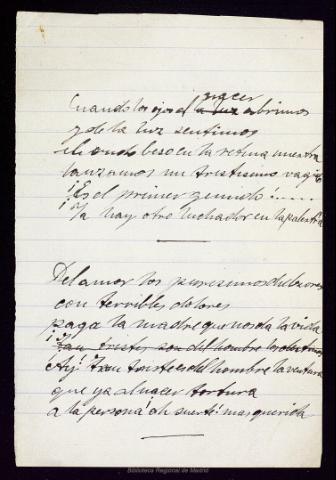 nacer
Cuando los ojos al a luz abrimos
y de la luz sentimos
el hondo beso en la retina nuestra
lanzamos un tristísimo vagido
¡Es el primer gemido!.....
¡Ya hay otro luchador en la palestra
Del amor los purísimos dulzores
con terribles dolores
paga la madre que nos da la vida
¡Tan tristes son del hombre los destinos
¡Ay! Tan triste es del hombre la ventura
que ya al nacer tortura
a la persona ¡oh suerte! mas querida
Biblioteca Regional de Madrid